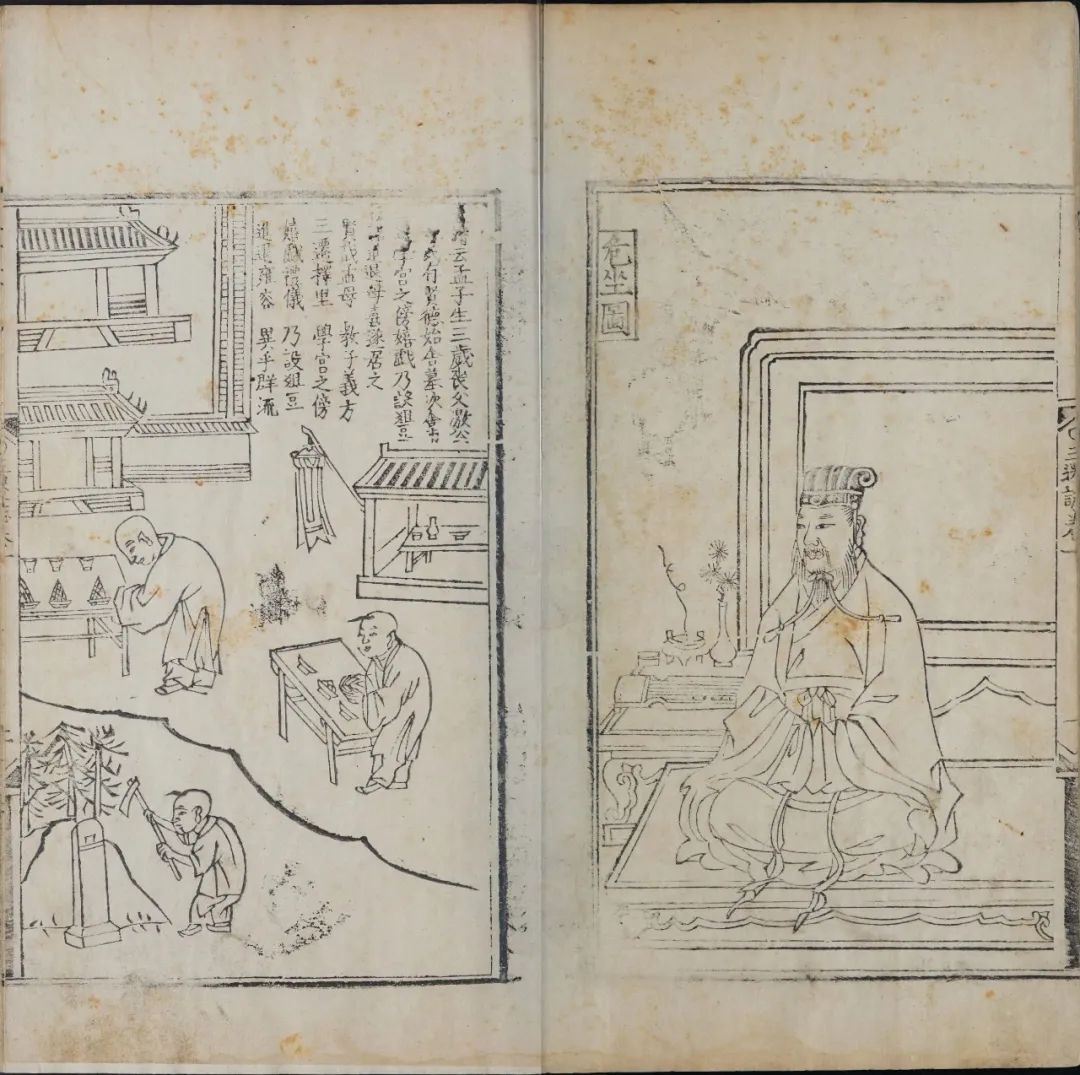 危坐圖
三遷誌卷一
云孟子生三歲喪父激公
有賢德始舍墓次舍市
學宮之傍嬉戲乃設俎豆
母喜遂居之
賢哉孟母 教子義方
三遷擇里 學宮之傍
嬉戲禮儀 乃設俎豆
進退雍容 異乎群流